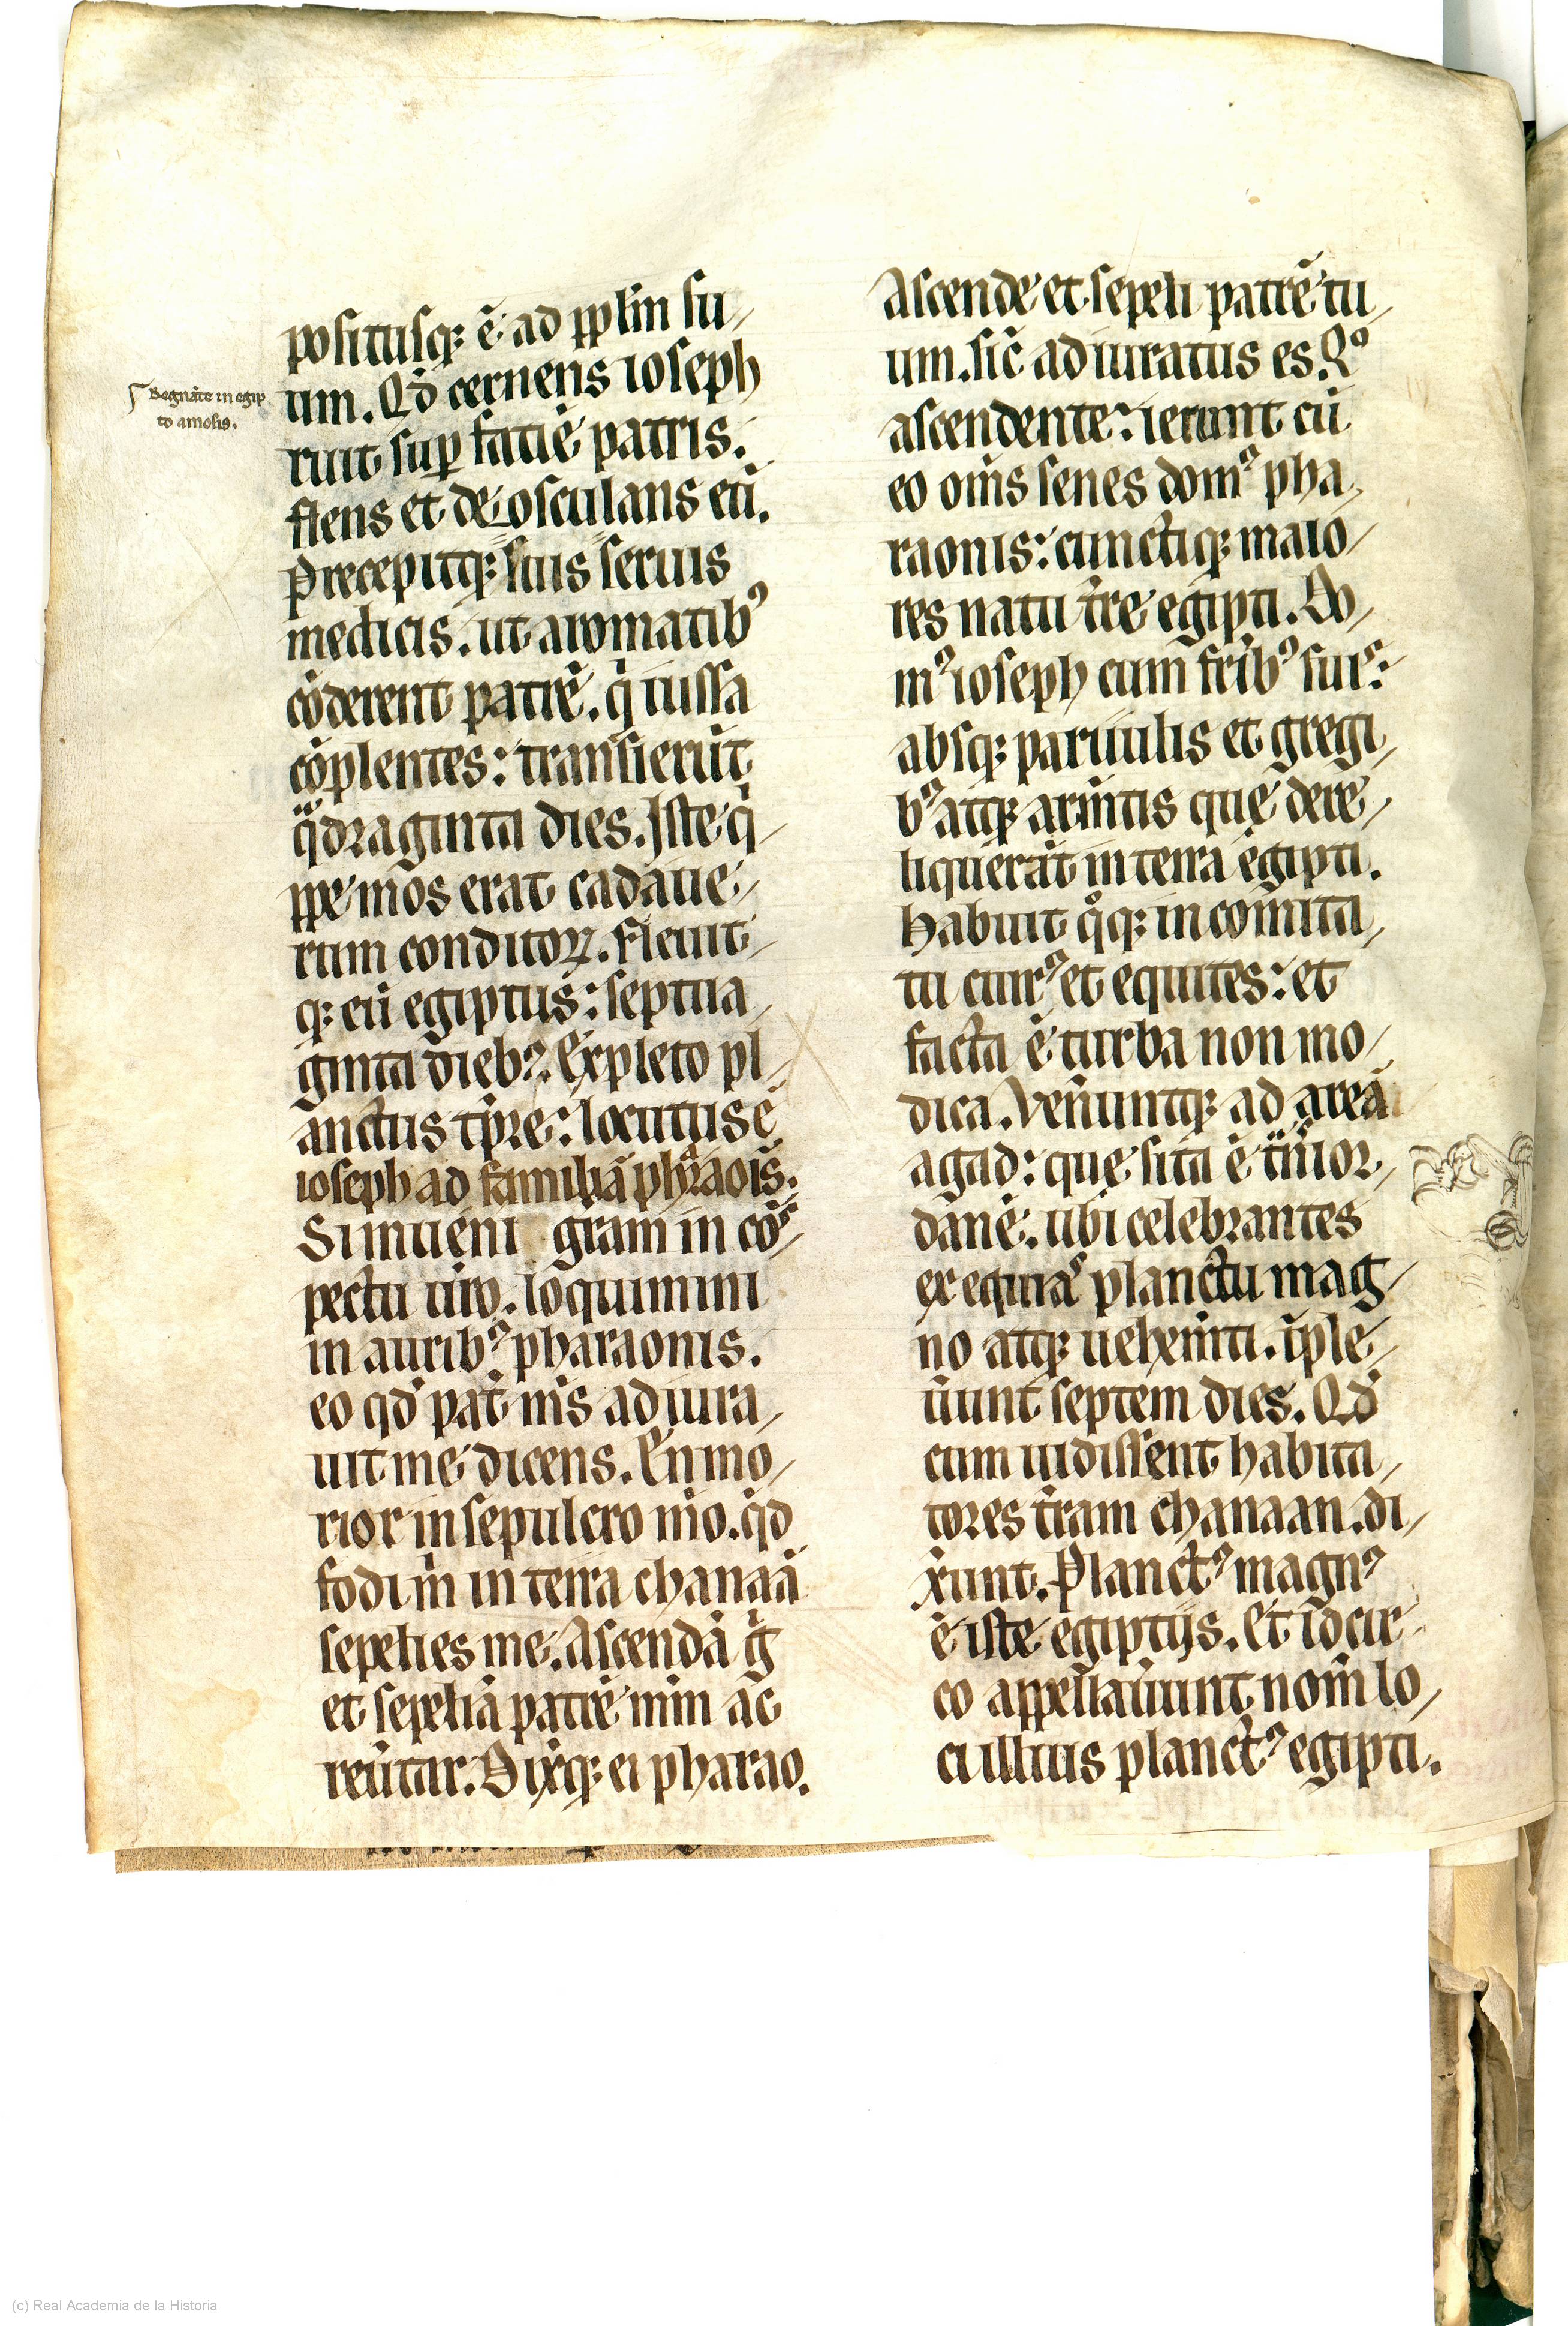 positusq; ē ad pplm̄ su/
um. Qd̄ cernens ioseph
ruit sup̱ faciē patris.
flens et deosculans eū.
Precepitq; suis seruis
medicis. ut aromatibꝰ
cōderent patrē. q̇ iussa
cōplentes: transierūt
q̈draginta dies. Iste q̇/
ppe mos erat cadaue/
rum conditoꝝ. Fleuit/
q; eū egiptus: septua/
ginta diebꝰ. Expleto pl/
anctus tp̄re: locutus ē
ioseph ad familiā phr̄aoīs.
Si inueni gr̄am in cōs/
pectu ur̄o. loquimini
in auribꝰ pharaonis.
eo qd̄ pat̄ nr̄s adiura/
uit me dicens. En mo/
rior in sepulcro mō. qd̄
fodi m̄ in terra chanaā
sepelies me. Ascendā g̊
et sepeliā patrē mm̄ ac
reūtar. Dixq; ei pharao.
Regnāte in egip
to amosis.
Ascende et sepeli patrē tu/
um. sic̄ adiuratus es. Qº
ascendente: ierunt cū
eo om̄s senes domꝰ pha/
raonis: cunctiq; maio/
res natu tr̄e egipti. Do/
mꝰ ioseph cum fr̄ibꝰ suis:
absq; paruulis et gregi/
bꝰ atq; arm̄tis que dere/
liquerāt in terra egipti.
Habuit q̊q; in comita/
tu currꝰ et equites: et
facta ē turba non mo/
dica. Vener̄untq; ad areā
agad: que sita ē t̄ns ior/
danē. ubi celebrantes
exequias planctu mag/
no atq; uehem̄ti. īple/
uer̄unt septem dies. Qd̄
cum uidissent habita/
tores tr̄am chanaan. di/
xer̄unt. Planctꝰ magnꝰ
ē iste egiptijs. Et idcir/
co appellauer̄unt nom̄ lo/
ci illius planctꝰ egipti.
(c) Real Academia de la Historia